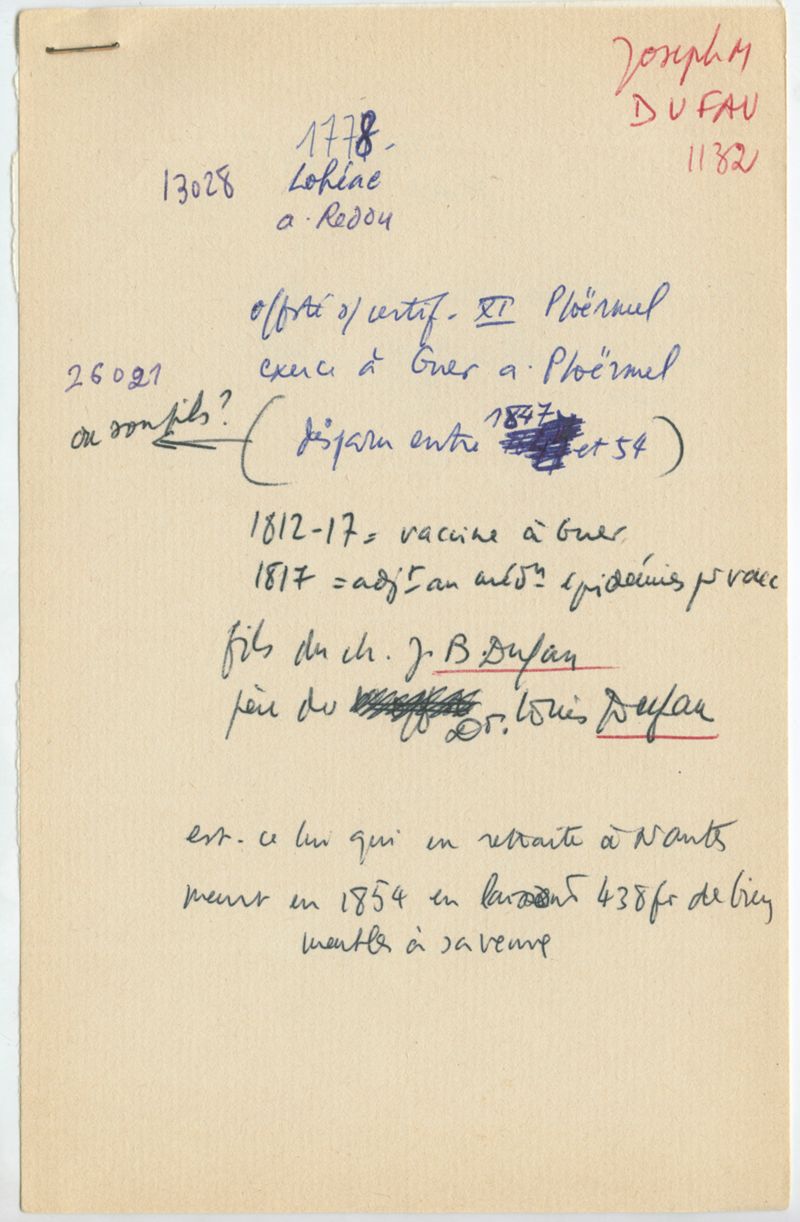 Joseph M
DUFAU
1132
1778.
13028 Lohéac
a. Redon
off. sté s/ certif. XI Ploërmel
26021 exerce à Guer a. Ploërmel
ou son fils ? (disparu entre 1847 et 54)
1812-17 = vaccine à Guer
1817 = adjt au médn épidémies pr vacc
fils du ch. J. B. Dufau
père du Dr. Louis Dufau
est-ce lui qui en retraite à Nantes
meurt en 1854 en laissant 438 fr de biens
meubles à sa veuve